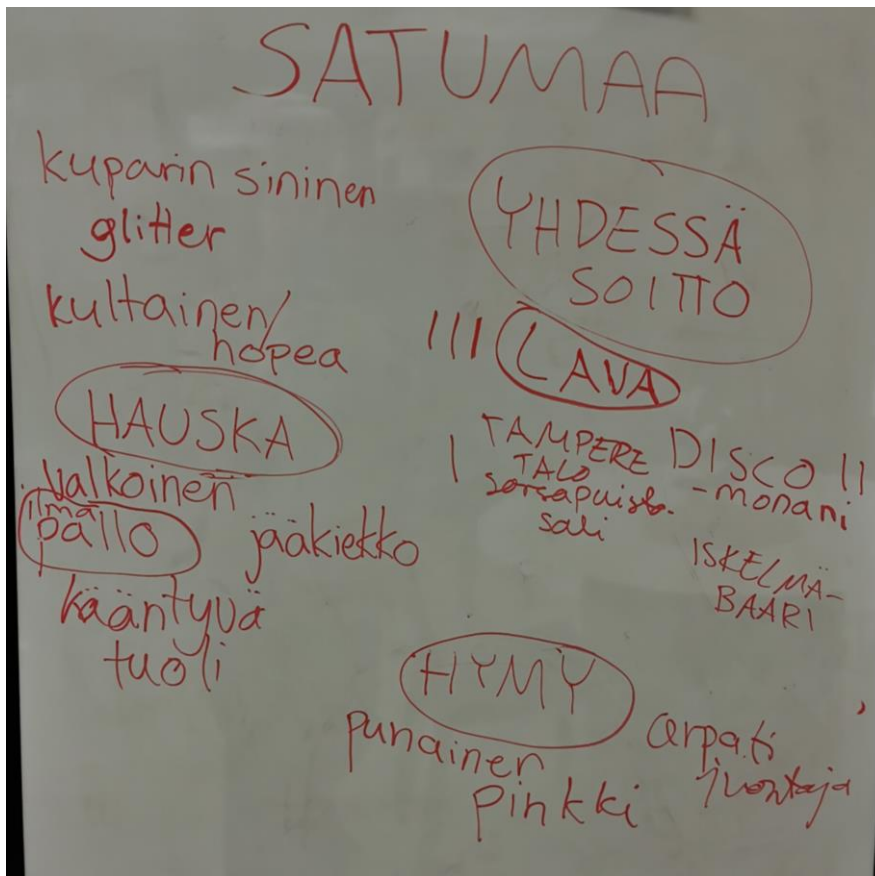 SATUMAA
kuparin sininen
glitter
kultainen/
hopea
HAUSKA
valkoinen
ilma
pallo
jääkiekko
kääntyvä
tuoli
YHDESSÄ
SOITTO
III LAVA
I TAMPERE
TALO
sorsapuisto.
sali
DISCO II
-monani
ISKELMÄ-
BAARI
HYMY
punainen
pinkki
juontaja